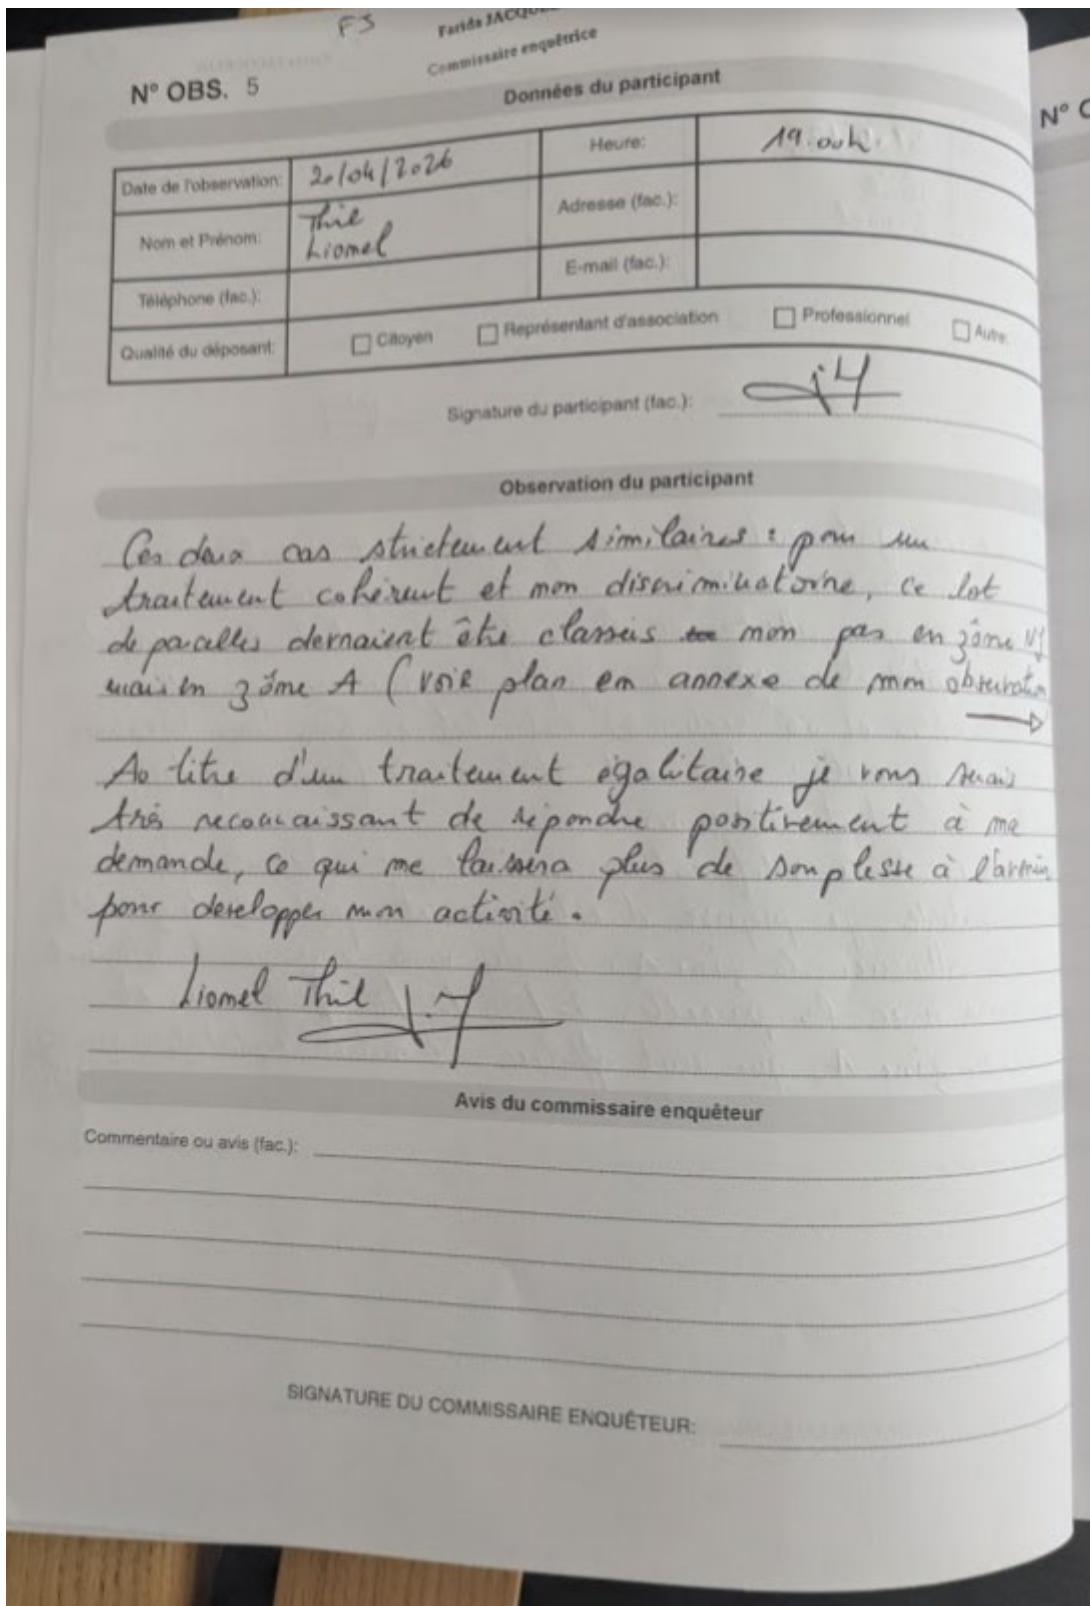 FJ
Farida JACQU
Commissaire enquêtrice
N° OBS. 5
Données du participant
Date de l'observation: 20/04/2026 Heure: 19.00h.
Nom et Prénom: Thil Lionel Adresse (fac.):
Téléphone (fac.): E-mail (fac.):
Qualité du déposant: Citoyen Représentant d'association Professionnel Autre:
Signature du participant (fac.):
Observation du participant
Ces deux cas strictement similaires : pour un
traitement cohérent et non discriminatoire, ce lot
de parcelles devraient être classés non pas en zône
mais en zône A ( voir plan en annexe de mon observation
Au titre d'un traitement égalitaire je vous serais
très reconnaissant de répondre positivement à ma
demande, ce qui me laissera plus de souplesse à l'avenir
pour developper mon activité.
Lionel Thil
Avis du commissaire enquêteur
Commentaire ou avis (fac.):
SIGNATURE DU COMMISSAIRE ENQUÊTEUR:
N°